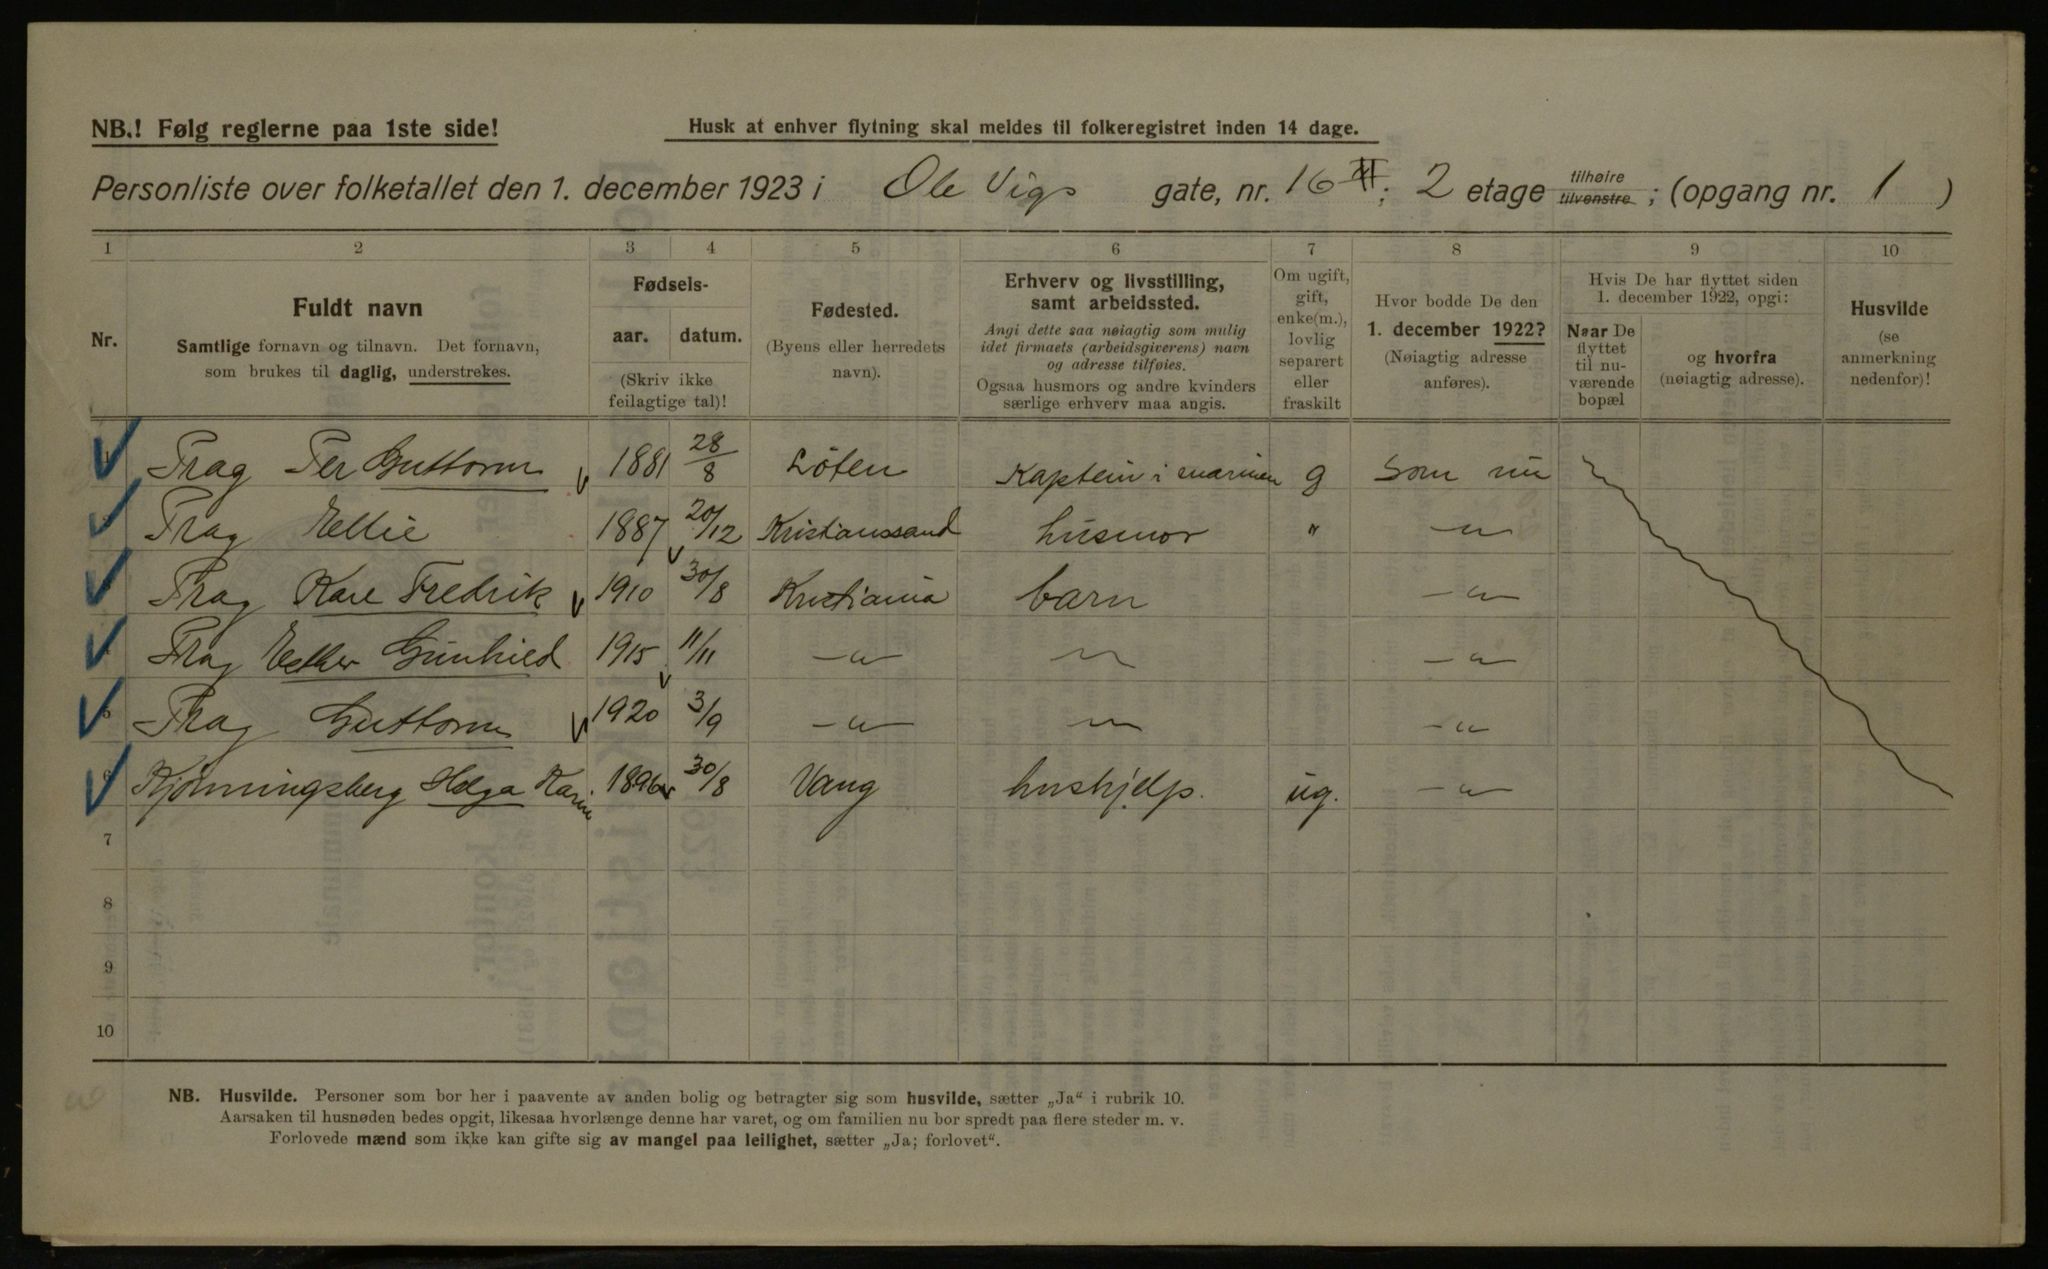 NB.! Følg reglerne paa 1ste side!
Husk at enhver flytning skal meldes til folkeregistret inden 14 dage.
Personliste over folketallet den 1. december 1923 i Ole Vigs gate, nr. 16 II; 2 etage tilhøire tilvenstre; (opgang nr. 1)
1 2 3 4 5 6 7 8 9 10
Nr.
Fuldt navn
Samtlige fornavn og tilnavn. Det fornavn,
som brukes til daglig, understrekes.
Fødsels-
aar. datum.
(Skriv ikke
feilagtige tal)!
Fødested.
(Byens eller herredets
navn).
Erhverv og livsstilling,
samt arbeidssted.
Angi dette saa nøiagtig som mulig
idet firmaets (arbeidsgiverens) navn
og adresse tilføies.
Ogsaa husmors og andre kvinders
særlige erhverv maa angis.
Om ugift,
gift,
enke(m.),
lovlig
separert
eller
fraskilt
Hvor bodde De den
1. december 1922?
(Nøiagtig adresse
anføres).
Hvis De har flyttet siden
1. december 1922, opgi:
Naar De
flyttet
til nu-
værende
bopæl
og hvorfra
(nøiagtig adresse).
Husvilde
(se
anmerkning
nedenfor)!
1 Prag Per Guttorm 1881 28/8 Löten Kaptein i marinen g som nu
2 Prag Ellie 1887 20/12 Kristianssand husmor " —„—
3 Prag Kare Fredrik 1910 30/8 Kristiania barn —„—
4 Prag Esther Gunhild 1915 11/11 —„— —„— —„—
5 Prag Guttorm 1920 3/9 —„— —„— —„—
6 Kjönningsberg Helga Karin 1896 30/8 Vang hushjelp. ug. —„—
7
8
9
10
NB. Husvilde. Personer som bor her i paavente av anden bolig og betragter sig som husvilde, sætter „Ja" i rubrik 10.
Aarsaken til husnøden bedes opgit, likesaa hvorlænge denne har varet, og om familien nu bor spredt paa flere steder m. v.
Forlovede mænd som ikke kan gifte sig av mangel paa leilighet, sætter „Ja; forlovet".